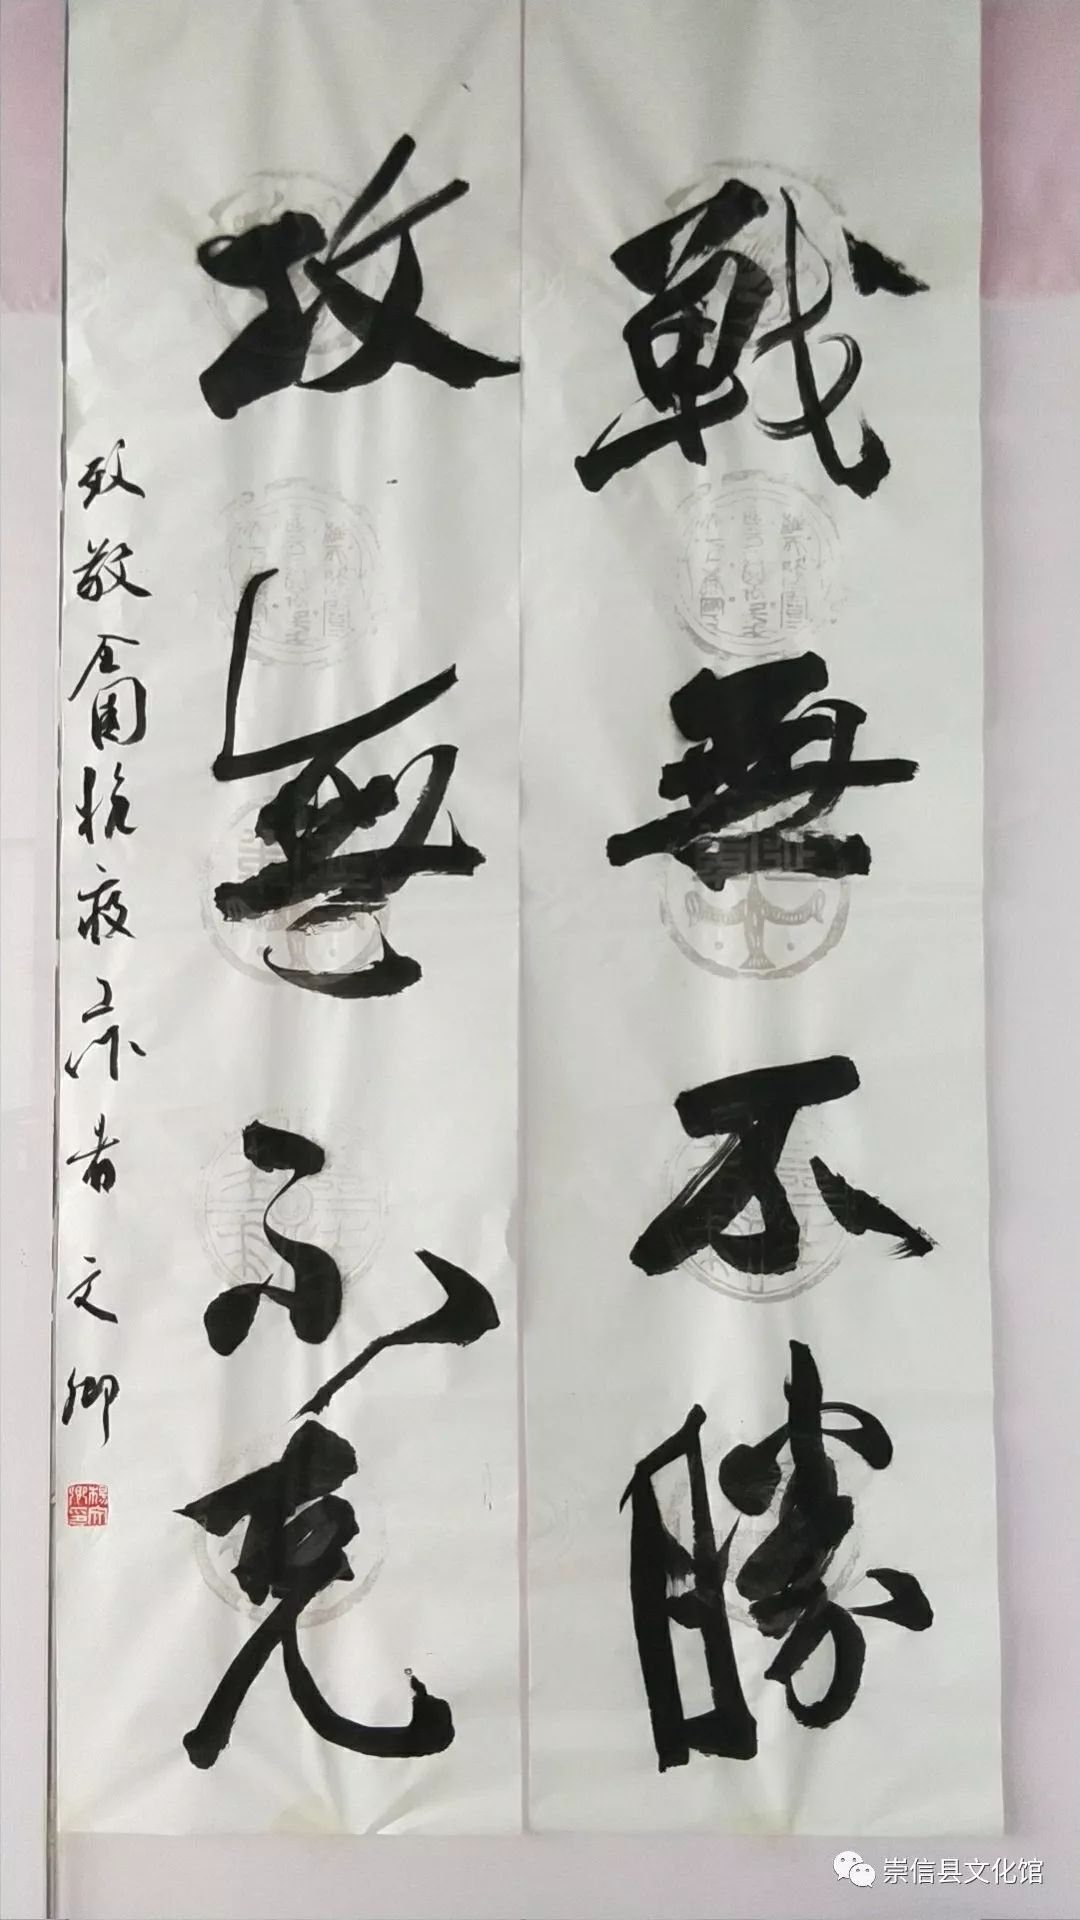 戰無不勝
攻無不克
致敬全国抗疫工作者 文卿
楊文卿印
崇信县文化馆